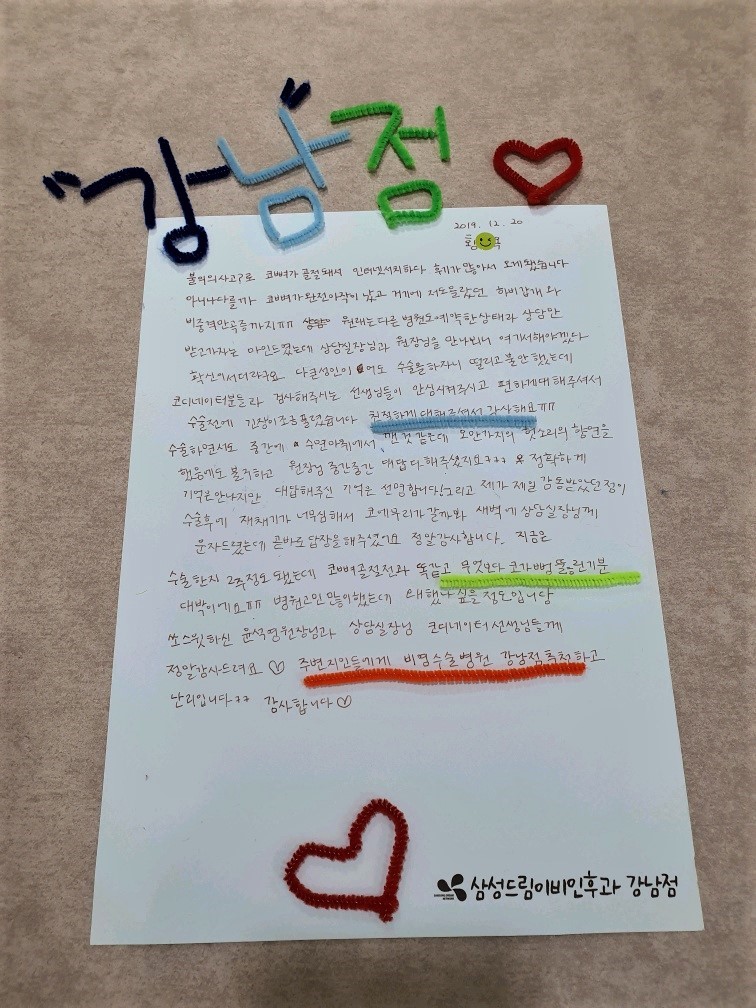 "강남"점
2019. 12. 20
황 록
불의의사고?로 코뼈가 골절돼서 인터넷서치하다 후기가 많아서 오게됐습니다
아니나다를까 코뼈가완전아작이 났고 거기에 저도몰랐던 하비갑개 와
비중격만곡증까지ㅠㅠ 원래는다른 병원도예약한상태라 상담만
받고가자는 마인드였는데 상담실장님과 원장님을 만나보니 여기서해야겠다
확신이서더라구요 다큰성인이어도 수술을하자니 떨리고불안했는데
코디네이터분들과 검사해주시는 선생님들이 안심시켜주시고 편하게대해주셔서
수술전에 긴장이조금풀렸습니다 친절하게대해주셔서감사해요ㅠㅠ
수술하면서도 중간에 수면마취에서 깬것같은데 오만가지의 헛소리의 향연을
했음에도 불구하고 원장님 중간중간 대답다해주셨지요ㅋㅋㅋ 정확하게
기억은안나지만 대답해주신 기억은 선명합니다!그리고 제가 제일 감동받았던점이
수술후에 재채기가 너무심해서 코에무리가갈까봐 새벽에 상담실장님께
문자드렸는데 곧바로답장을해주셨어요 정말감사합니다. 지금은
수술한지 2주정도 됐는데 코뼈골절전과 똑같고 무엇보다 코가뻥뚫린기분
대박이에요ㅠㅠ 병원고민 많이했는데 안했나싶을정도입니다
쏘스윗하신 윤석영원장님과 상담실장님 코디네이터선생님들께
정말감사드려요 ♡ 주변지인들에게 비염수술병원 강남점추천하고
난리입니다ㅋㅋ 감사합니다♡
삼성드림이비인후과 강남점